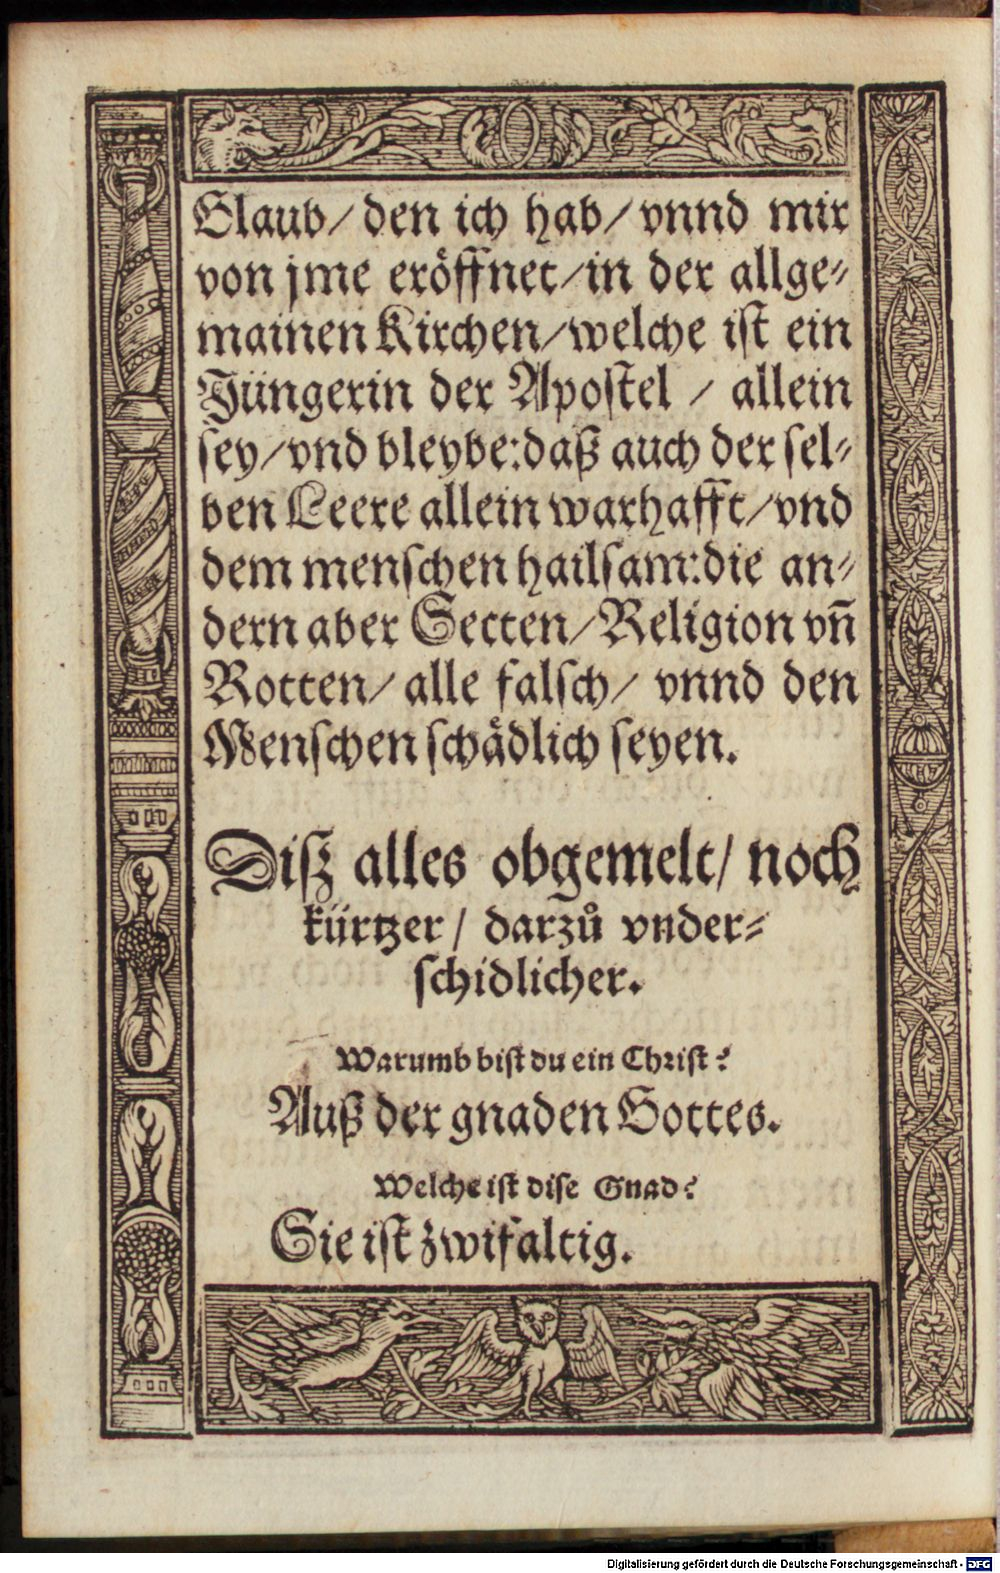 Glaub/ den ich hab/ vnnd mir
von jme eröffnet/ in der allge⸗
mainen Kirchen/ welche ist ein
Jüngerin der Apostel / allein
sey/ vnd bleybe: daß auch der sel⸗
ben Leere allein warhafft/ vnd
dem menschen hailsam: die an⸗
dern aber Secten/ Religion vn̄
Rotten/ alle falsch/ vnnd den
Menschen schädlich seyen.
Diß alles obgemelt/ noch
kürtzer/ darzů vnder⸗
schidlicher.
Warumb bist du ein Christ?
Auß der gnaden Gottes.
Welche ist dise Gnad?
Sie ist zwifaltig.
Digitalisierung gefördert durch die Deutsche Forschungsgemeinschaft - DFG